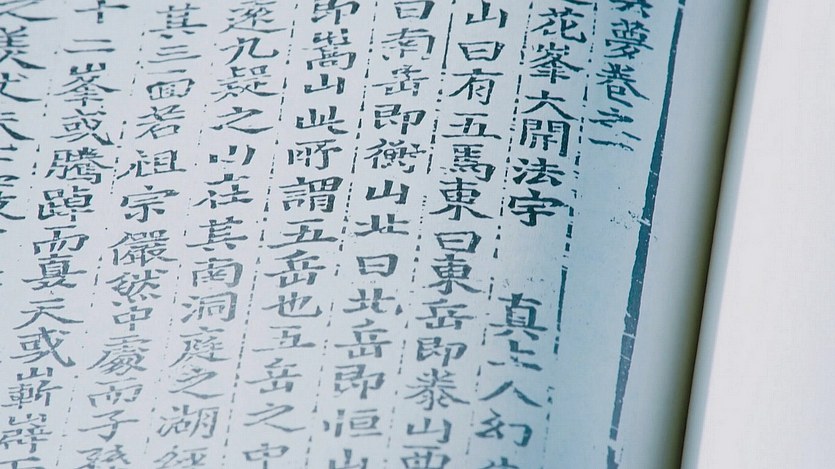 夢卷之一
花峯大開法宇 真上人幻
山曰有五焉東曰東岳即泰山西
曰南岳即衡山北曰北岳即恒山
即嵩山此所謂五岳也五岳之中
遠九疑之山在其南洞庭之湖經
其三面若祖宗儼然中處而子孫
十二峯或騰踔而戛天或嶄